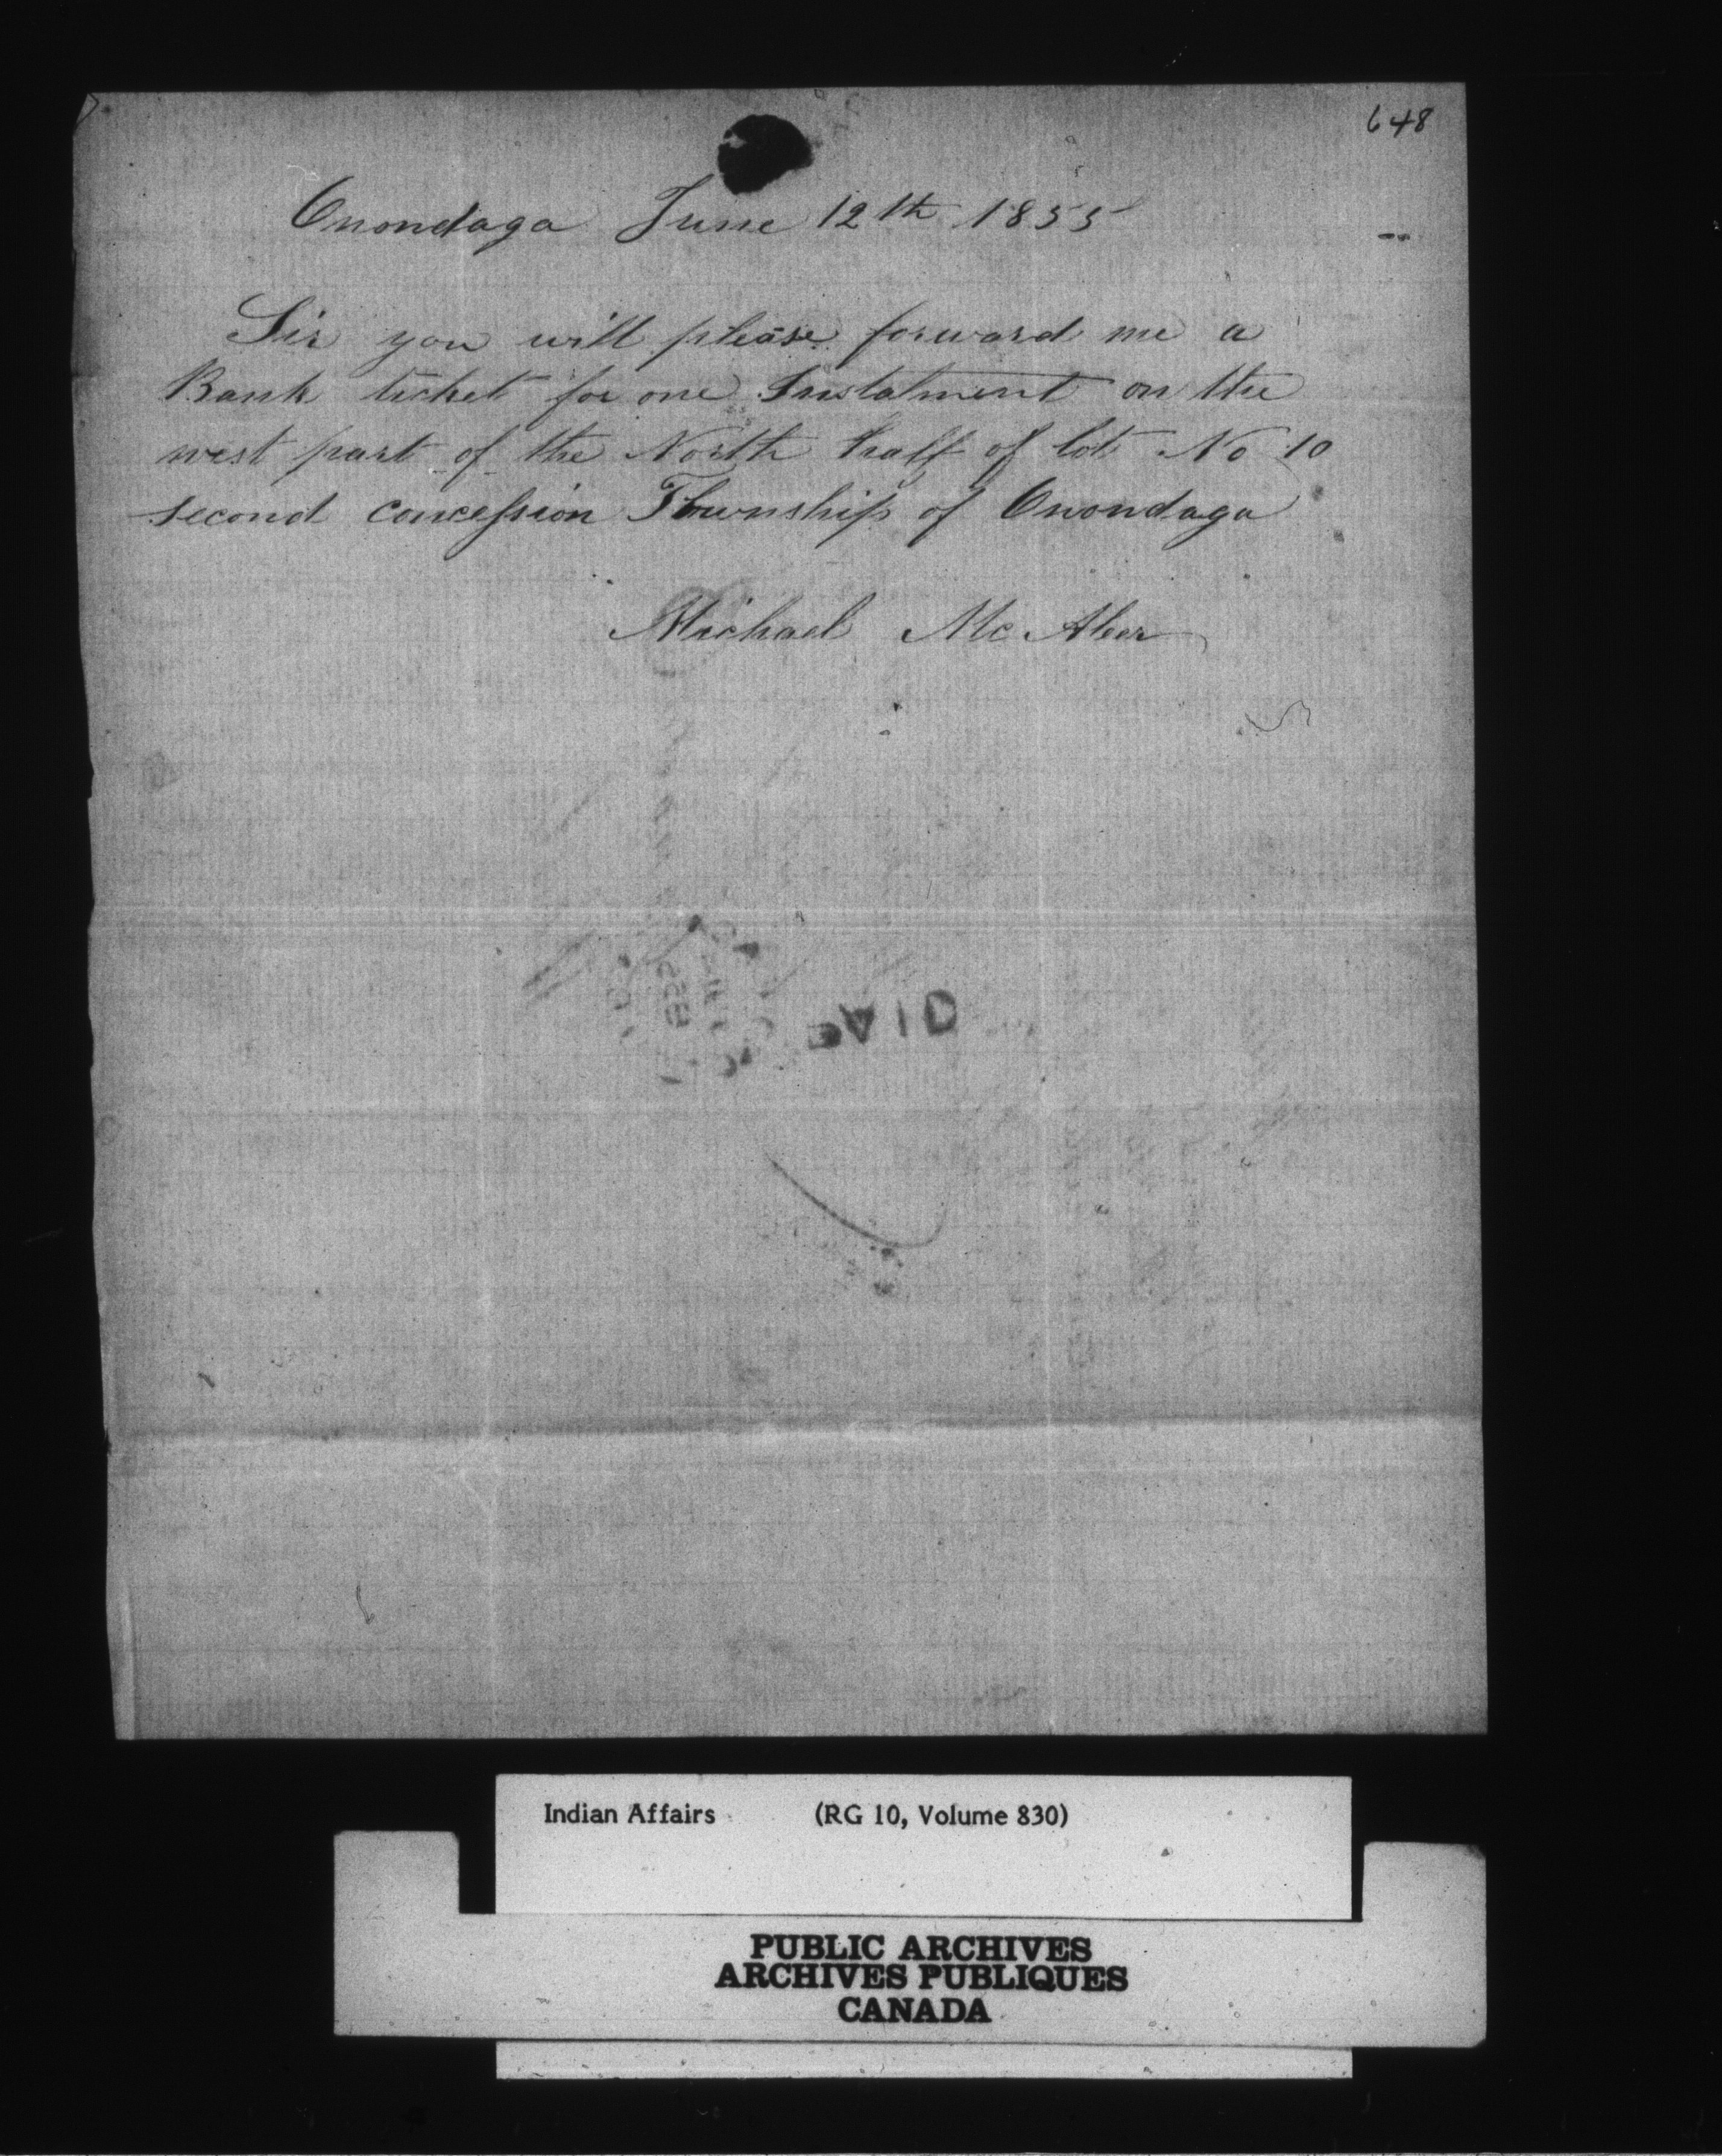 648
Onondaga June 12th 1855
Sir you will please forward me a
Bank ticket for one Instalment on the
west part of the North half of lot No 10
second concession Township of Onondaga
Michael Mc Aleer
PAID
1855
Indian Affairs (RG 10, Volume 830)
PUBLIC ARCHIVES
ARCHIVES PUBLIQUES
CANADA